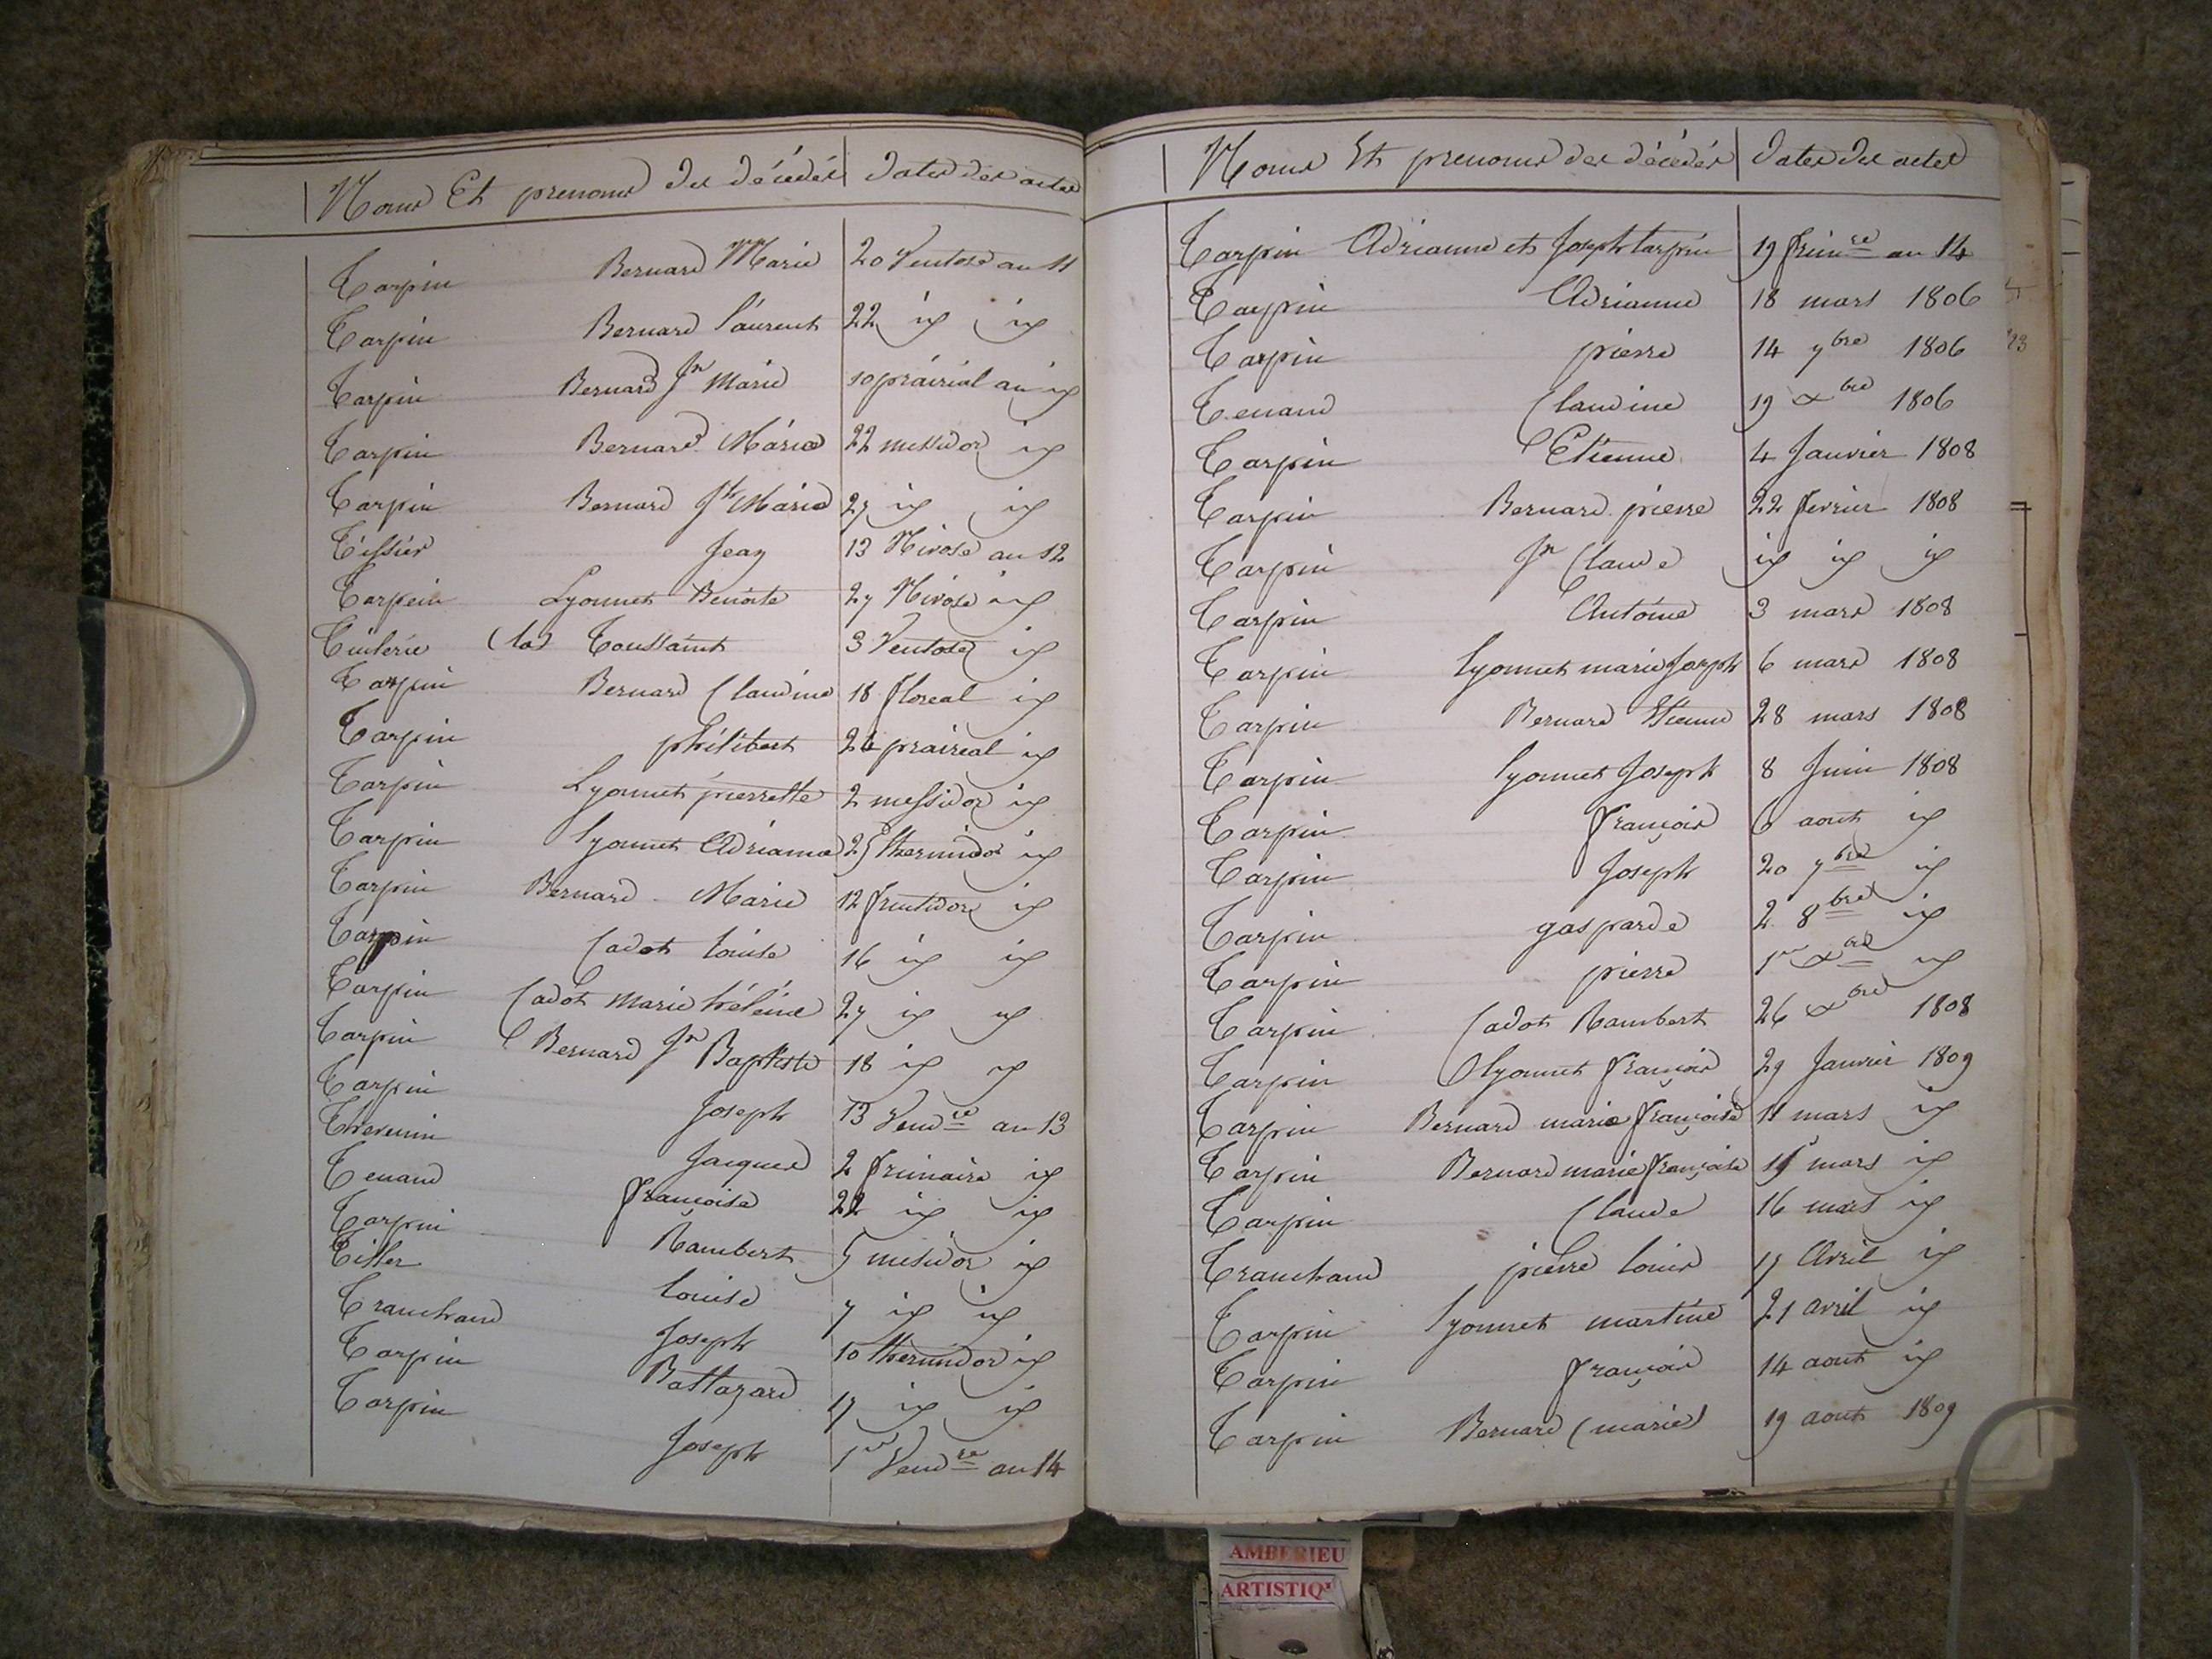 Noms Et prenoms des décédés dates des actes
Tarpin Bernard Marie 20 Ventose an 11
Tarpin Bernard laurent 22 id id
Tarpin Bernard Jn Marie 10 prairial an id
Tarpin Bernard Marie 22 messidor id
Tarpin Bernard Jh Marie 27 id id
Tissier Jean 13 Nivose an 12
Tarpin Lyonnet Benoite 27 Nivose id
Tuilerie (la) Toussaint 3 Ventose id
Tarpin Bernard Claudine 18 floreal id
Tarpin philibert 26 prairial id
Tarpin Lyonnet pierrette 2 messidor id
Tarpin lyonnet Adrianne 25 thermidor id
Tarpin Bernard Marie 12 fructidor id
Tarpin Cadot louise 16 id id
Tarpin Cadot Marie hélène 27 id id
Tarpin Bernard Jn Baptiste 18 id id
Tarpin Joseph 13 Vendre an 13
Thevenin Jacques 2 frimaire id
Tenand françoise 22 id id
Tarpin Rambert 5 messidor id
Tisser louise 7 id id
Tranchand Joseph 10 thermidor id
Tarpin Baltazard 17 id id
Tarpin Joseph 1er Vendre an 14
Noms Et prenoms des décédés dates des actes
Tarpin Adrianne et Joseph tarpin 19 frimre an 14
Tarpin Adrianne 18 mars 1806
Tarpin pierre 14 7bre 1806
Tenand Claudine 19 xbre 1806
Tarpin Etienne 4 Janvier 1808
Tarpin Bernard pierre 22 fevrier 1808
Tarpin Jn Claude id id id
Tarpin Antoine 3 mars 1808
Tarpin lyonnet marie Joseph 6 mars 1808
Tarpin Bernard Etienne 28 mars 1808
Tarpin lyonnet Joseph 8 Juin 1808
Tarpin françois 6 aout id
Tarpin Joseph 20 7bre id
Tarpin gasparde 2 8bre id
Tarpin pierre 1er xbre id
Tarpin Cadot Rambert 26 xbre 1808
Tarpin lyonnet françois 29 Janvier 1809
Tarpin Bernard marie françoise 11 mars id
Tarpin Bernard marie françoise mars id
Tarpin Claude 16 mars id
Tranchand pierre louis 17 Avril id
Tarpin lyonnet martine 21 avril id
Tarpin françois 14 aout id
Tarpin Bernard (marie) 19 aout 1809
AMBERIEU
ARTISTIQ